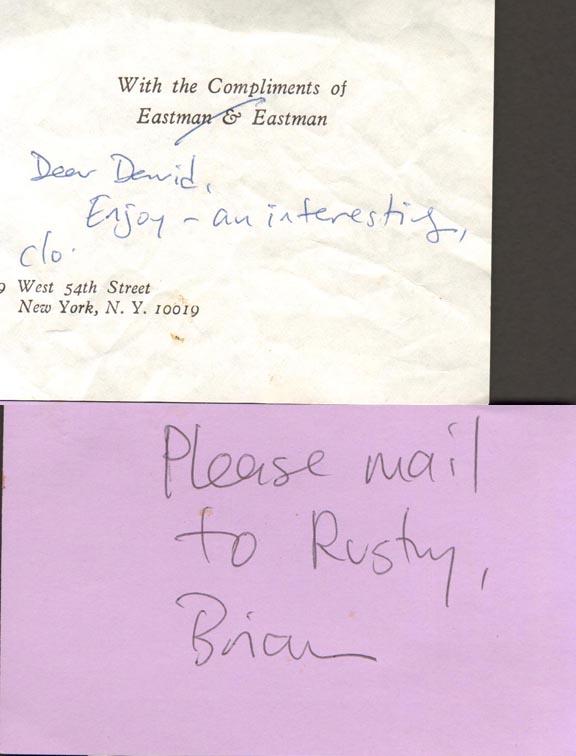 With the Compliments of
Eastman & Eastman
Dear David,
Enjoy - an interesting,
9 West 54th Street
New York, N. Y. 10019
Please mail
to Rusty,
Brian